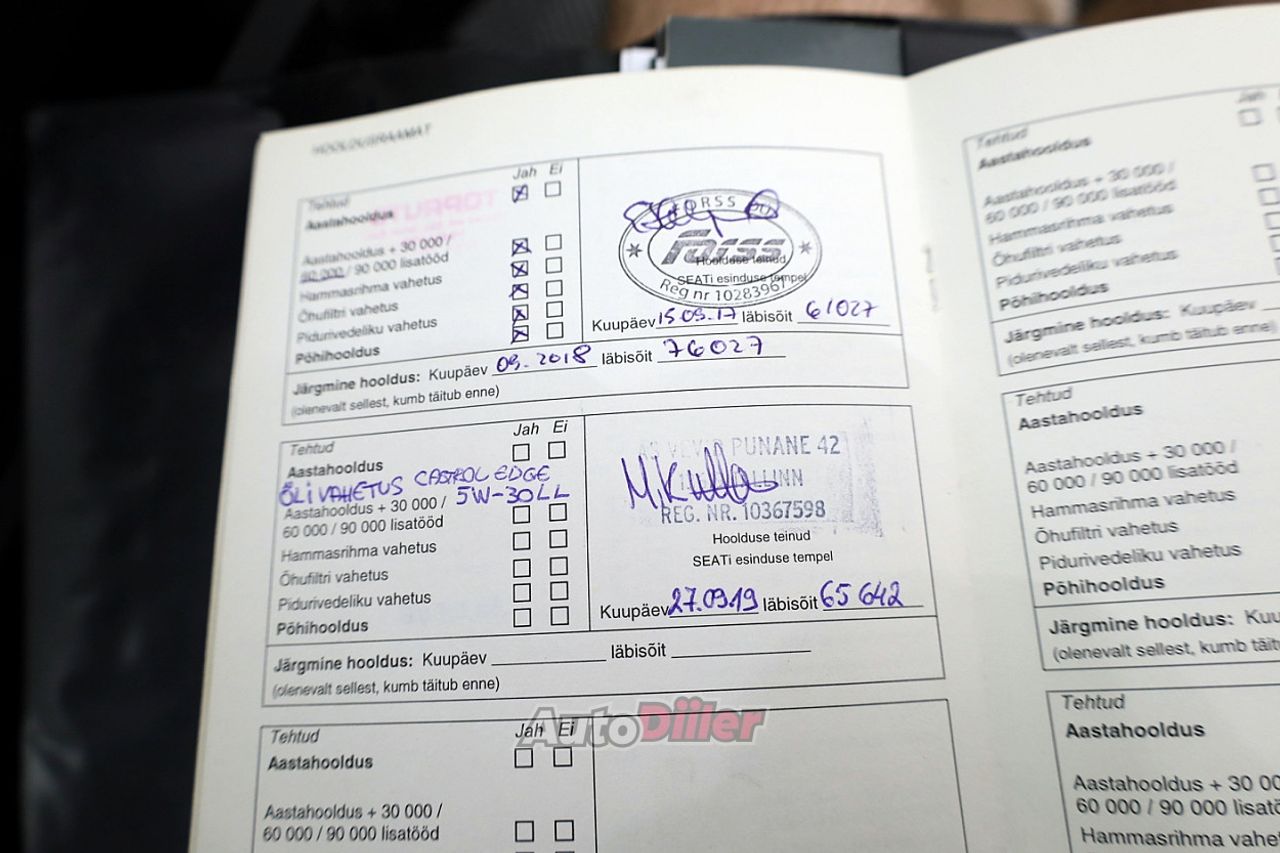 HOOLDUSRAAMAT
Tehtud
Jah Ei
Aastahooldus
Aastahooldus + 30 000 /
60 000 / 90 000 lisatööd
Hammasrihma vahetus
Õhufiltri vahetus
Pidurivedeliku vahetus
Põhihooldus
FORSS OÜ
Forss
Hoolduse teinud
SEATi esinduse tempel
Reg nr 10283967
Kuupäev 15.09.17 läbisõit 61027
Järgmine hooldus: Kuupäev 09.2018 läbisõit 76027
(olenevalt sellest, kumb täitub enne)
Tehtud
Jah Ei
Aastahooldus
ÕLIVAHETUS CASTROL EDGE
5W-30LL
Aastahooldus + 30 000 /
60 000 / 90 000 lisatööd
Hammasrihma vahetus
Õhufiltri vahetus
Pidurivedeliku vahetus
Põhihooldus
PUNANE 42
REG. NR. 10367598
Hoolduse teinud
SEATi esinduse tempel
Kuupäev 27.09.19 läbisõit 65 642
Järgmine hooldus: Kuupäev läbisõit
(olenevalt sellest, kumb täitub enne)
AutoDiiler
Tehtud
Jah Ei
Aastahooldus
Aastahooldus + 30 000 /
60 000 / 90 000 lisatööd
Tehtud
Jah
Aastahooldus
Aastahooldus + 30 000 /
60 000 / 90 000 lisatööd
Hammasrihma vahetus
Õhufiltri vahetus
Pidurivedeliku vahetus
Põhihooldus
Järgmine hooldus: Kuupäev
(olenevalt sellest, kumb täitub enne)
Tehtud
Aastahooldus
Aastahooldus + 30 000 /
60 000 / 90 000 lisatööd
Hammasrihma vahetus
Õhufiltri vahetus
Pidurivedeliku vahetus
Põhihooldus
Järgmine hooldus: Kuu
(olenevalt sellest, kumb täit
Tehtud
Aastahooldus
Aastahooldus + 30 00
60 000 / 90 000 lisatö
Hammasrihma vahe